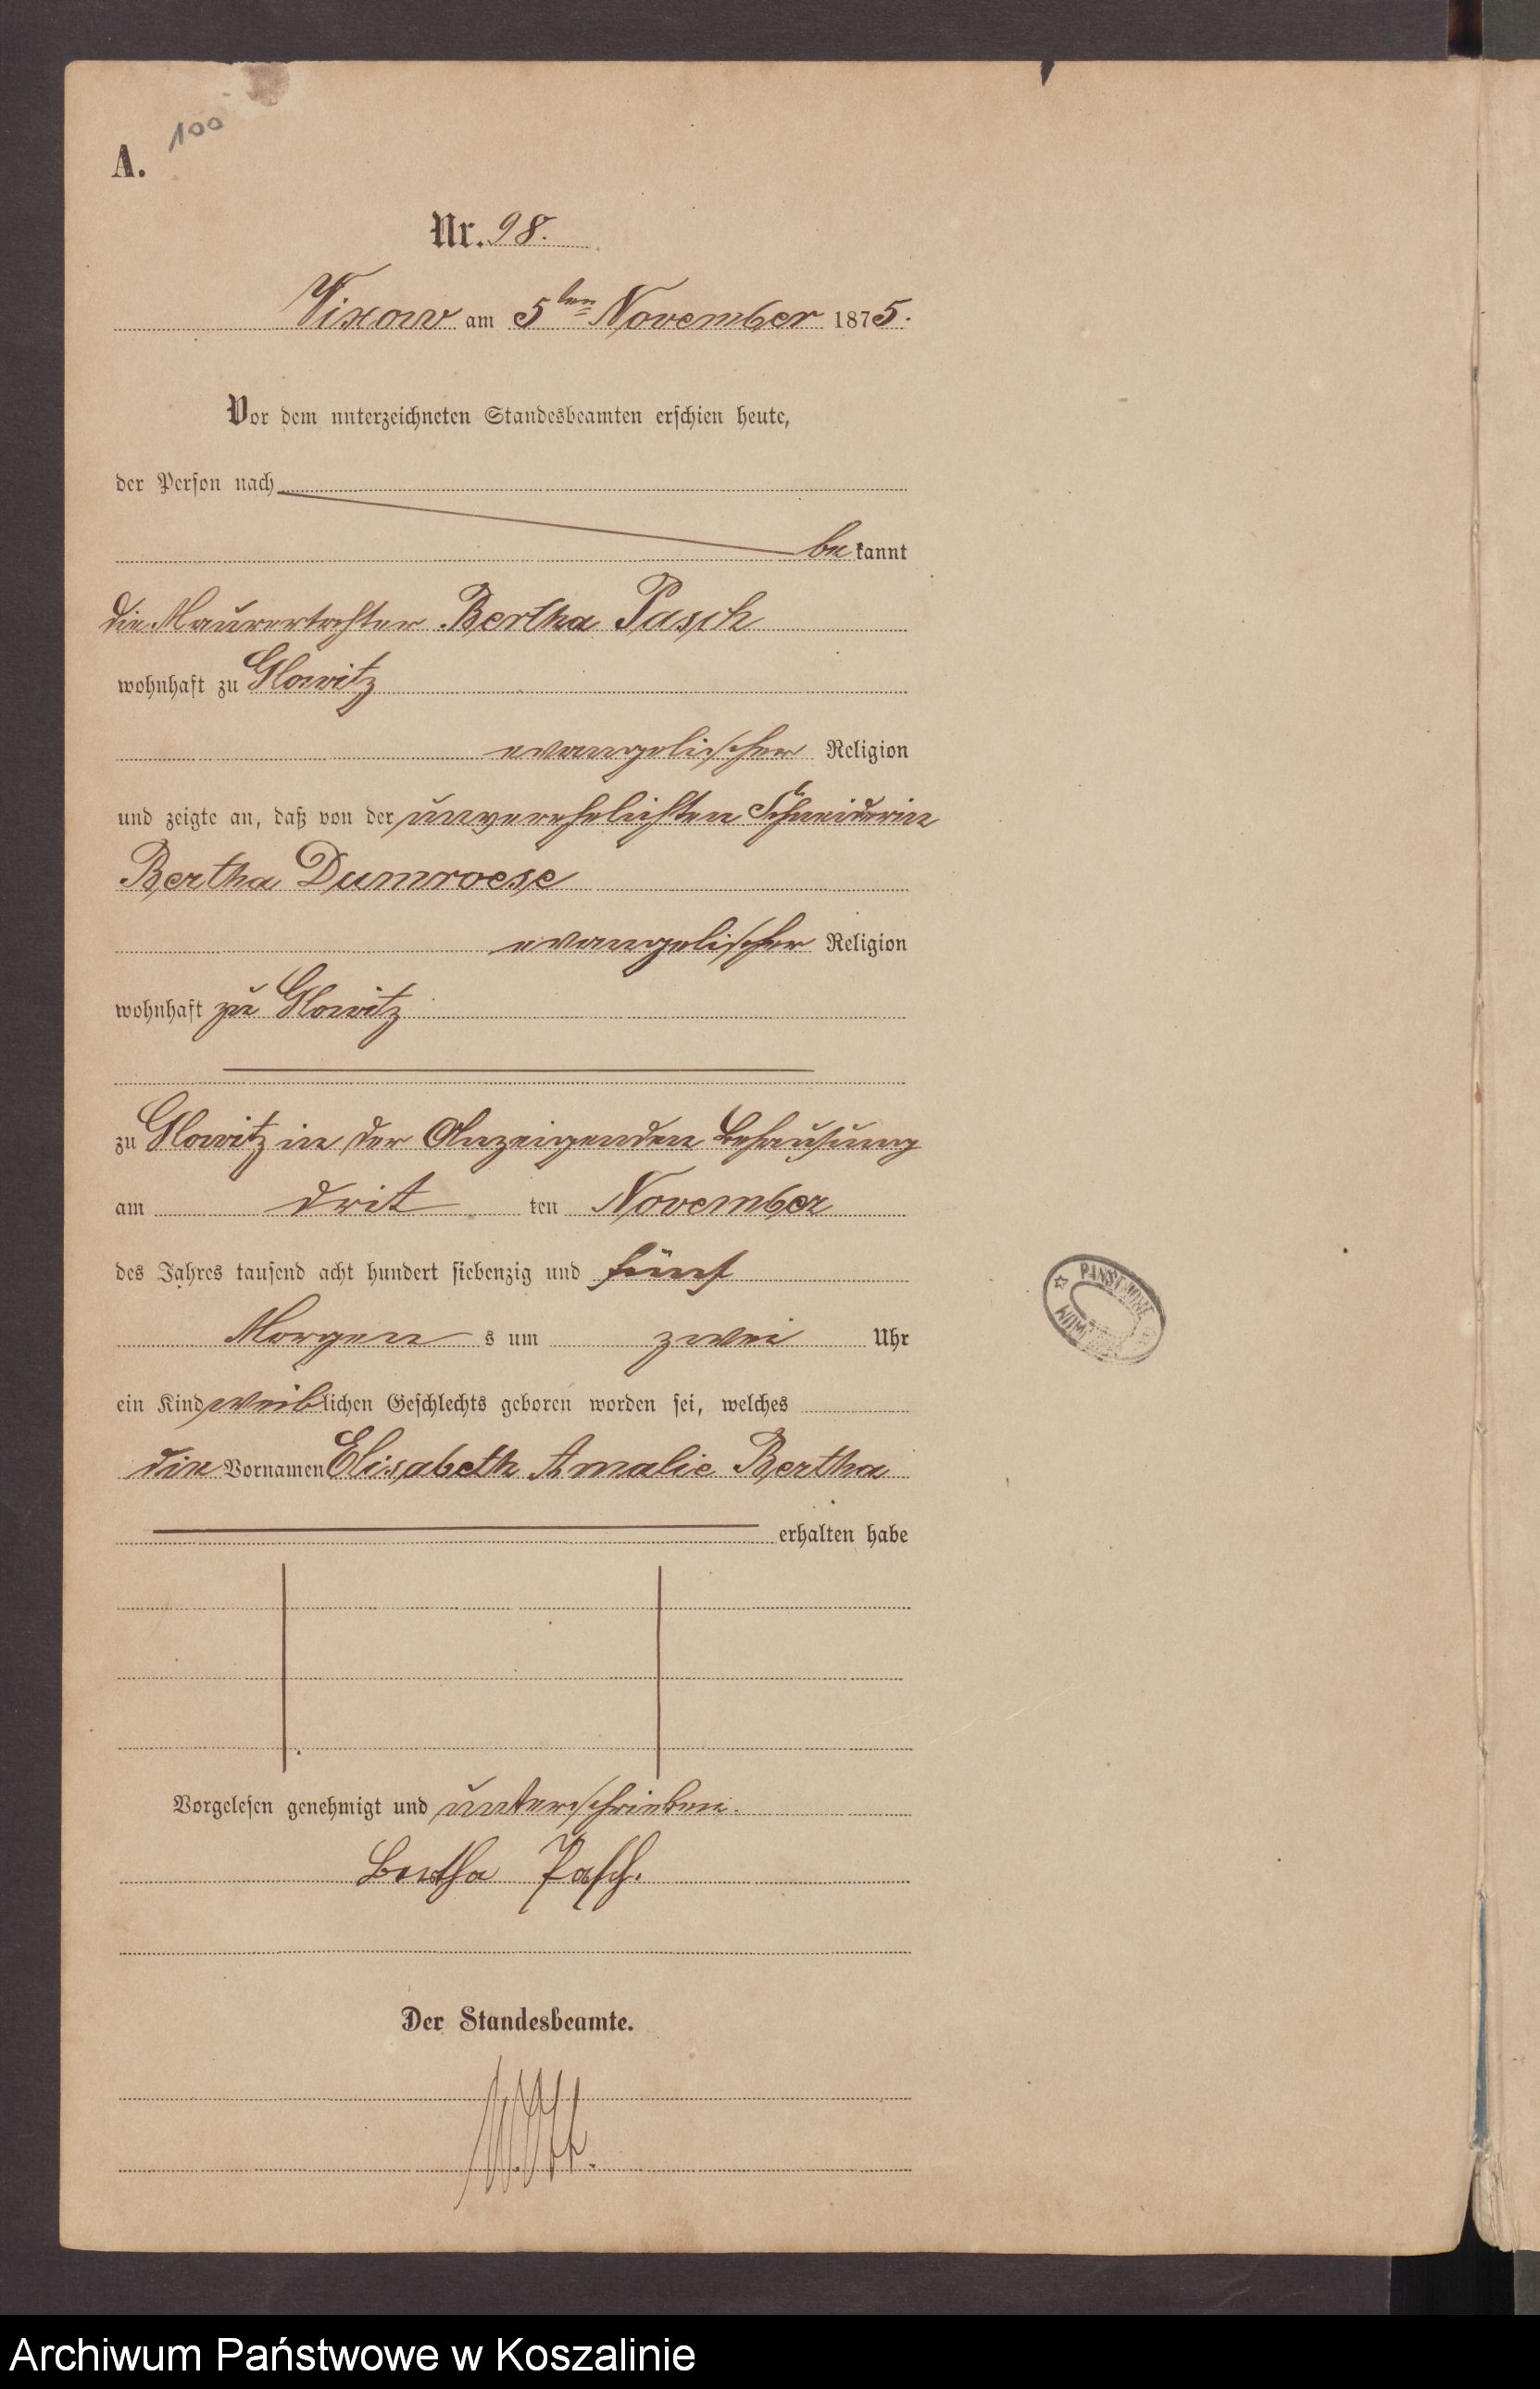 A.
100
Nr. 98.
Vixow am 5ten November 1875.
Vor dem unterzeichneten Standesbeamten erschien heute,
der Person nach
bekannt
die Maurertochter Bertha Pasch
wohnhaft zu Glowitz
evangelischer Religion
und zeigte an, daß von der unverehelichten Schneiderin
Bertha Dumroese
evangelischer Religion
wohnhaft zu Glowitz
zu Glowitz in der Anzeigenden Behausung
am drit ten November
des Jahres tausend acht hundert siebenzig und fünf
Morgen s um zwei Uhr
ein Kind weiblichen Geschlechts geboren worden sei, welches
die Vornamen Elisabeth Amalie Bertha
erhalten habe
Vorgelesen genehmigt und unterschrieben.
Bertha Pasch.
Der Standesbeamte.
Archiwum Państwowe w Koszalinie